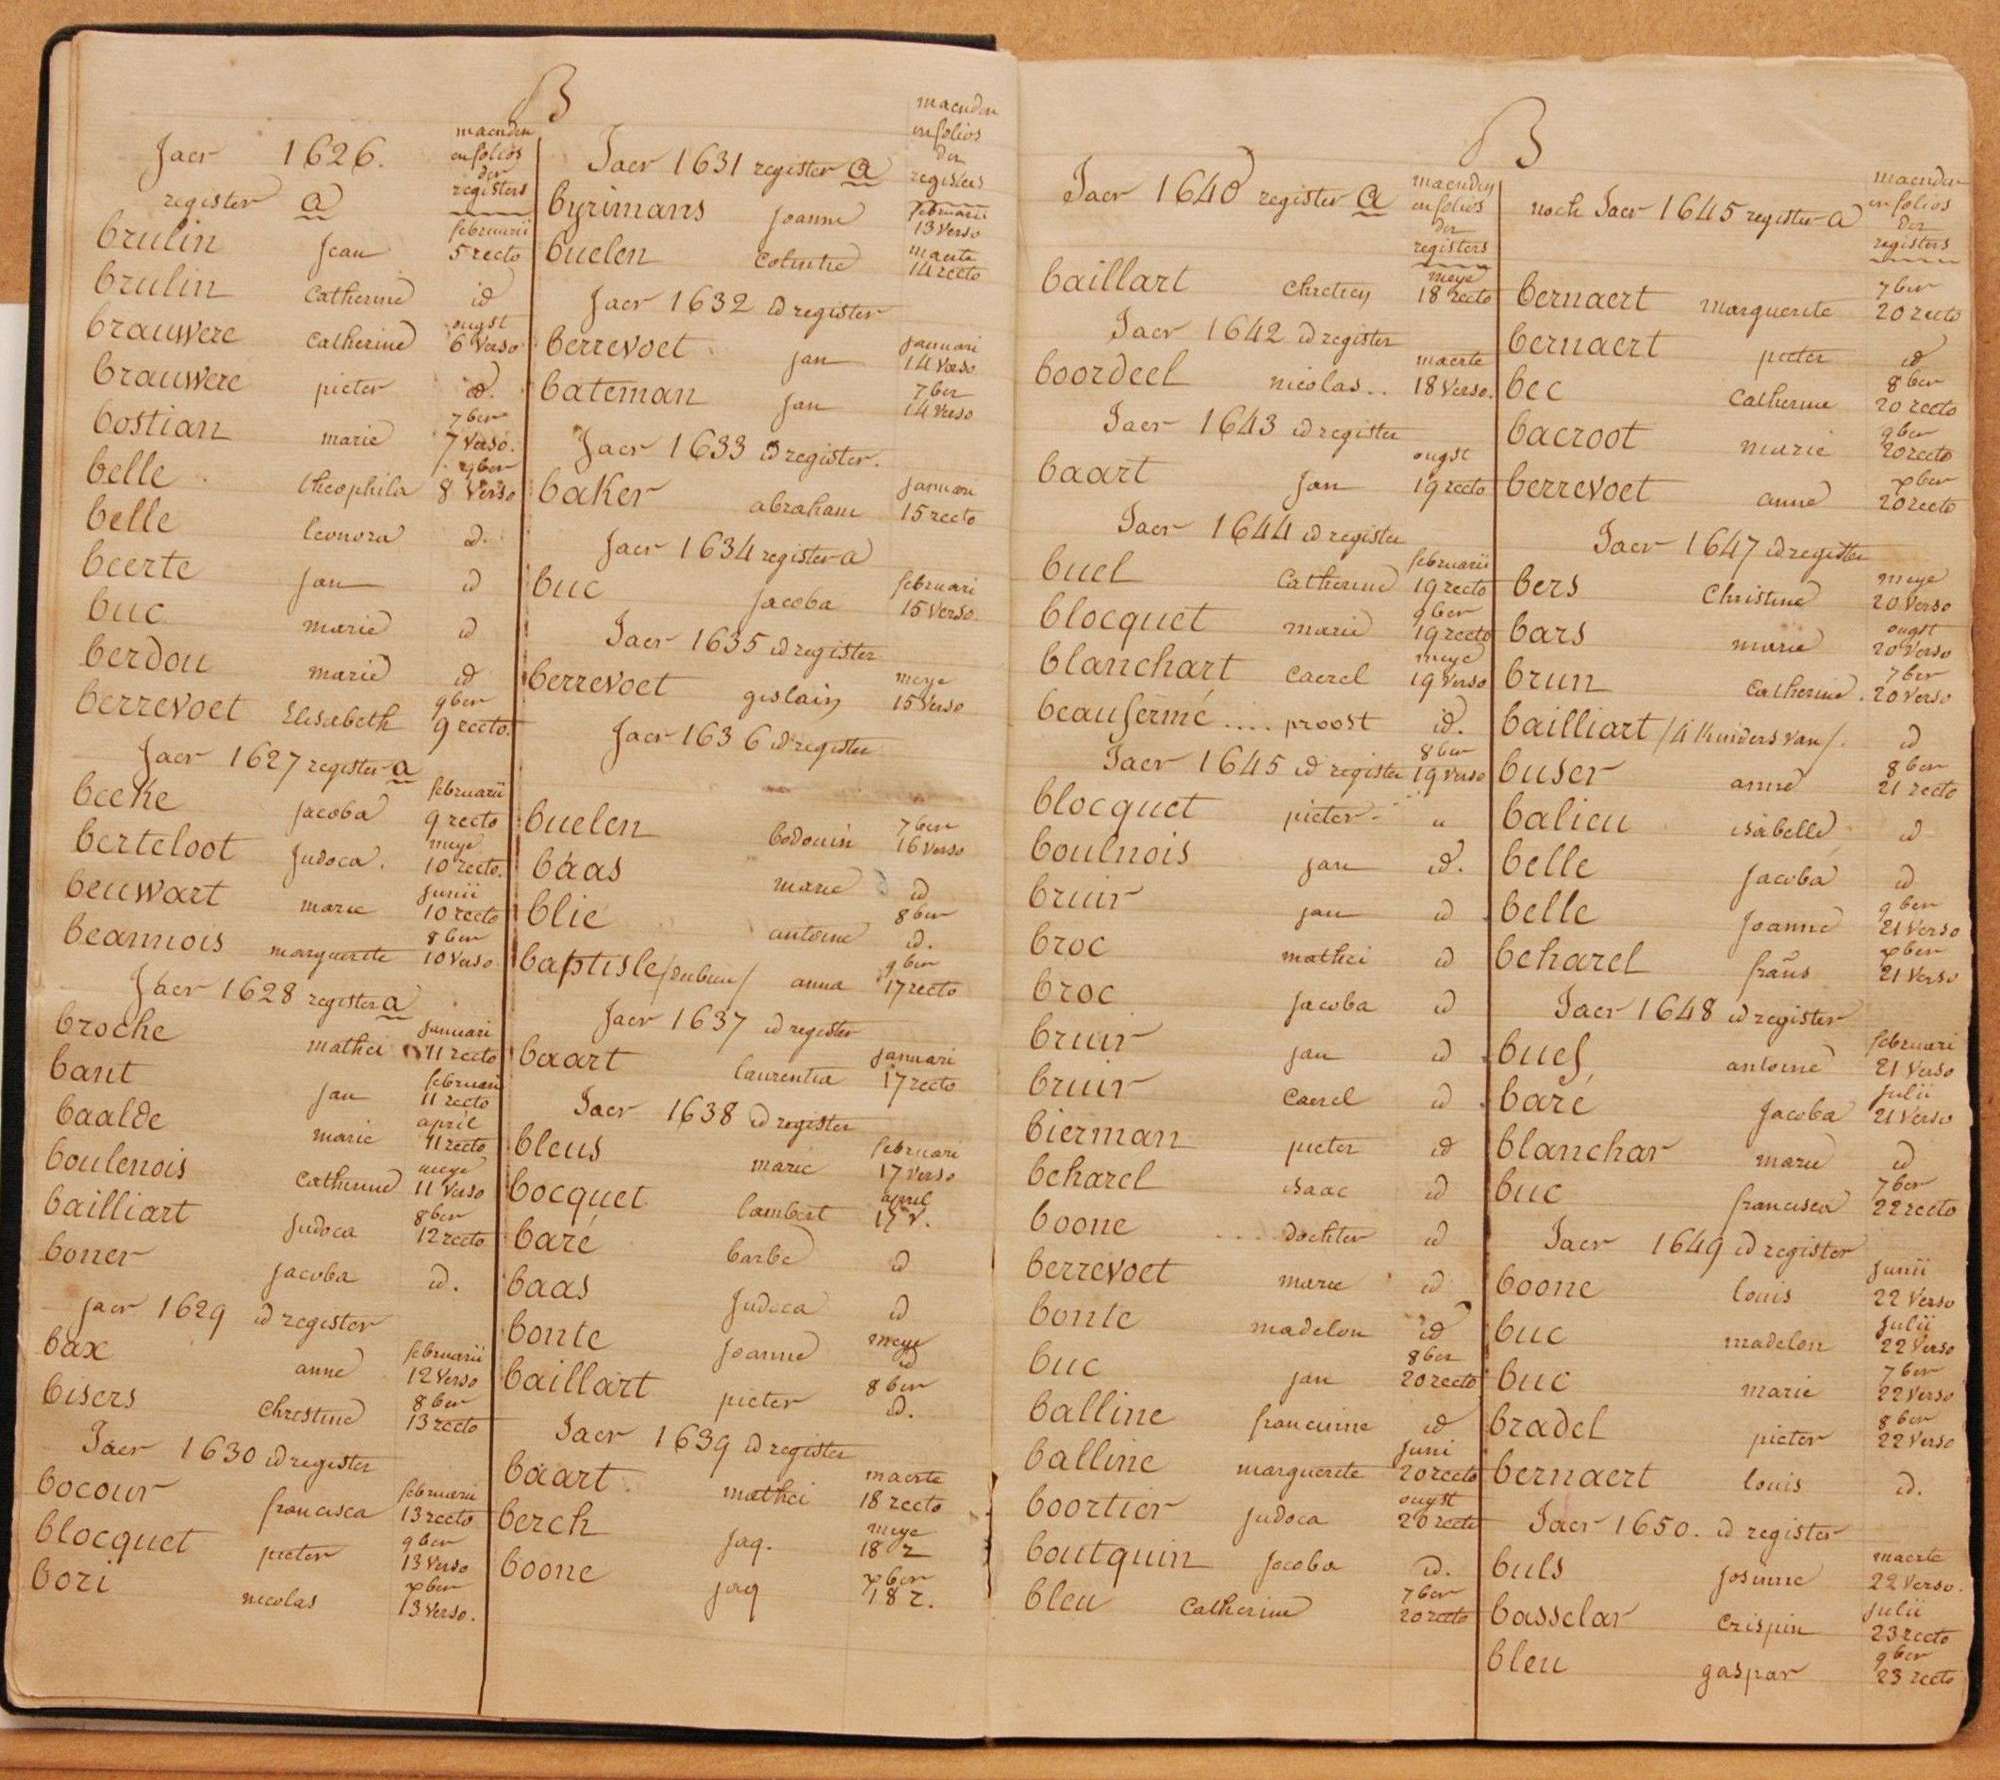 B
Jaer 1626.
register a
maenden
en folios
der
registers
februarii
brulin Jean 5 recto
brulin Catherine id
ougst
brauwere Catherine 6 Verso
brauwere pieter id.
7ber
bostian marie 7 Verso.
9ber
belle theophila 8 Verso
belle leonora id.
beerte Jan id
buc marie id
berdou marie id
9ber
berrevoet Elisabeth 9 recto.
Jaer 1627 register a
februarii
beeke Jacoba 9 recto
meye
berteloot Judoca. 10 recto.
Junii
beuwart marie 10 recto
8ber
beannois marguerite 10 Verso
Jaer 1628 register a
Januari
broche mathei 11 recto
februari
bant Jan 11 recto
april
baalde marie 11 recto
meye
boulenois Catherine 11 Verso
8ber
bailliart Judoca 12 recto
boner Jacoba id.
Jaer 1629 id register
februarii
bax anne 12 Verso
8ber
bisers Christine 13 recto
Jaer 1630 id register
februarii
bocour francisca 13 recto
9ber
blocquet pieter 13 Verso
xber
bori nicolas 13 Verso.
maenden
en folios
der
registers
Jaer 1631 register a
februarii
byrimans Joanne 13 Verso
maerte
buelen 14 recto
Jaer 1632 id register
Januari
berrevoet Jan 14 Verso
7ber
bateman Jan 14 Verso
Jaer 1633 id register.
Januari
baker abraham 15 recto
Jaer 1634 register a
februari
buc Jacoba 15 Verso.
Jaer 1635 id register
meye
berrevoet gislain 15 Verso
Jaer 1636 id register
7ber
buelen bodouin 16 Verso
baas marie id
8ber
blie antoine id.
9ber
baptiste anna 17 recto
Jaer 1637 id register
Januari
baart laurentia 17 recto
Jaer 1638 id register
februari
bleus marie 17 Verso
april
bocquet lambert 17 v.
baré barbe id
baas Judoca id
meye
bonte Joanne id
8ber
baillart pieter id.
Jaer 1639 id register
maerte
baart mathei 18 recto
meye
berch Jaq. 18 r
xber
boone Jaq 18 r.
B
Jaer 1640 register a
maenden
en folios
der
registers
meye
baillart Chretien 18 recto
Jaer 1642 id register
maerte
boordeel nicolas.. 18 Verso.
Jaer 1643 id register
ougst
baart Jan 19 recto
Jaer 1644 id register
februarii
buel Catherine 19 recto
9ber
blocquet marie 19 recto
meye
blanchart Caerel 19 Verso
beaufermé .... proost id.
8ber
Jaer 1645 id register 19 Verso
blocquet pieter "
boulnois Jan id.
bruir Jan id
broc mathei id
broc Jacoba id
bruir Jan id
bruir Caerel id
bierman pieter id
beharel isaac id
boone .... dochter id
berrevoet marie id
bonte madelon id
8ber
buc Jan 20 recto
balline francinne id
Juni
balline marguerite 20 recto
ougst
boortier Judoca 20 recto
boutquin Jacoba id.
7ber
bleu Catherine 20 recto
noch Jaer 1645 register a
maenden
en folios
der
registers
7ber
bernaert marguerite 20 recto
bernaert pieter id
8ber
bec Catherine 20 recto
9ber
bacroot marie 20 recto
xber
berrevoet anne 20 recto
Jaer 1647 id register
meye
bers Christine 20 Verso
ougst
bars marie 20 Verso
7ber
brun Catherine. 20 Verso
bailliart /4 kinders van/. id
8ber
buser anne 21 recto
balieu isabelle id
belle Jacoba id
9ber
belle Joanne 21 Verso
xber
beharel frans 21 Verso
Jaer 1648 id register
februari
buef antoine 21 Verso
Julii
baré Jacoba 21 Verso
blanchar marie id
7ber
buc francisca 22 recto
Jaer 1649 id register
Junii
boone louis 22 Verso
Julii
buc madelon 22 Verso
7ber
buc marie 22 Verso
8ber
bradel pieter 22 Verso
bernaert louis id.
Jaer 1650. id register
maerte
buls Josinne 22 Verso.
Julii
basselar Crispin 23 recto
9ber
bleu gaspar 23 recto